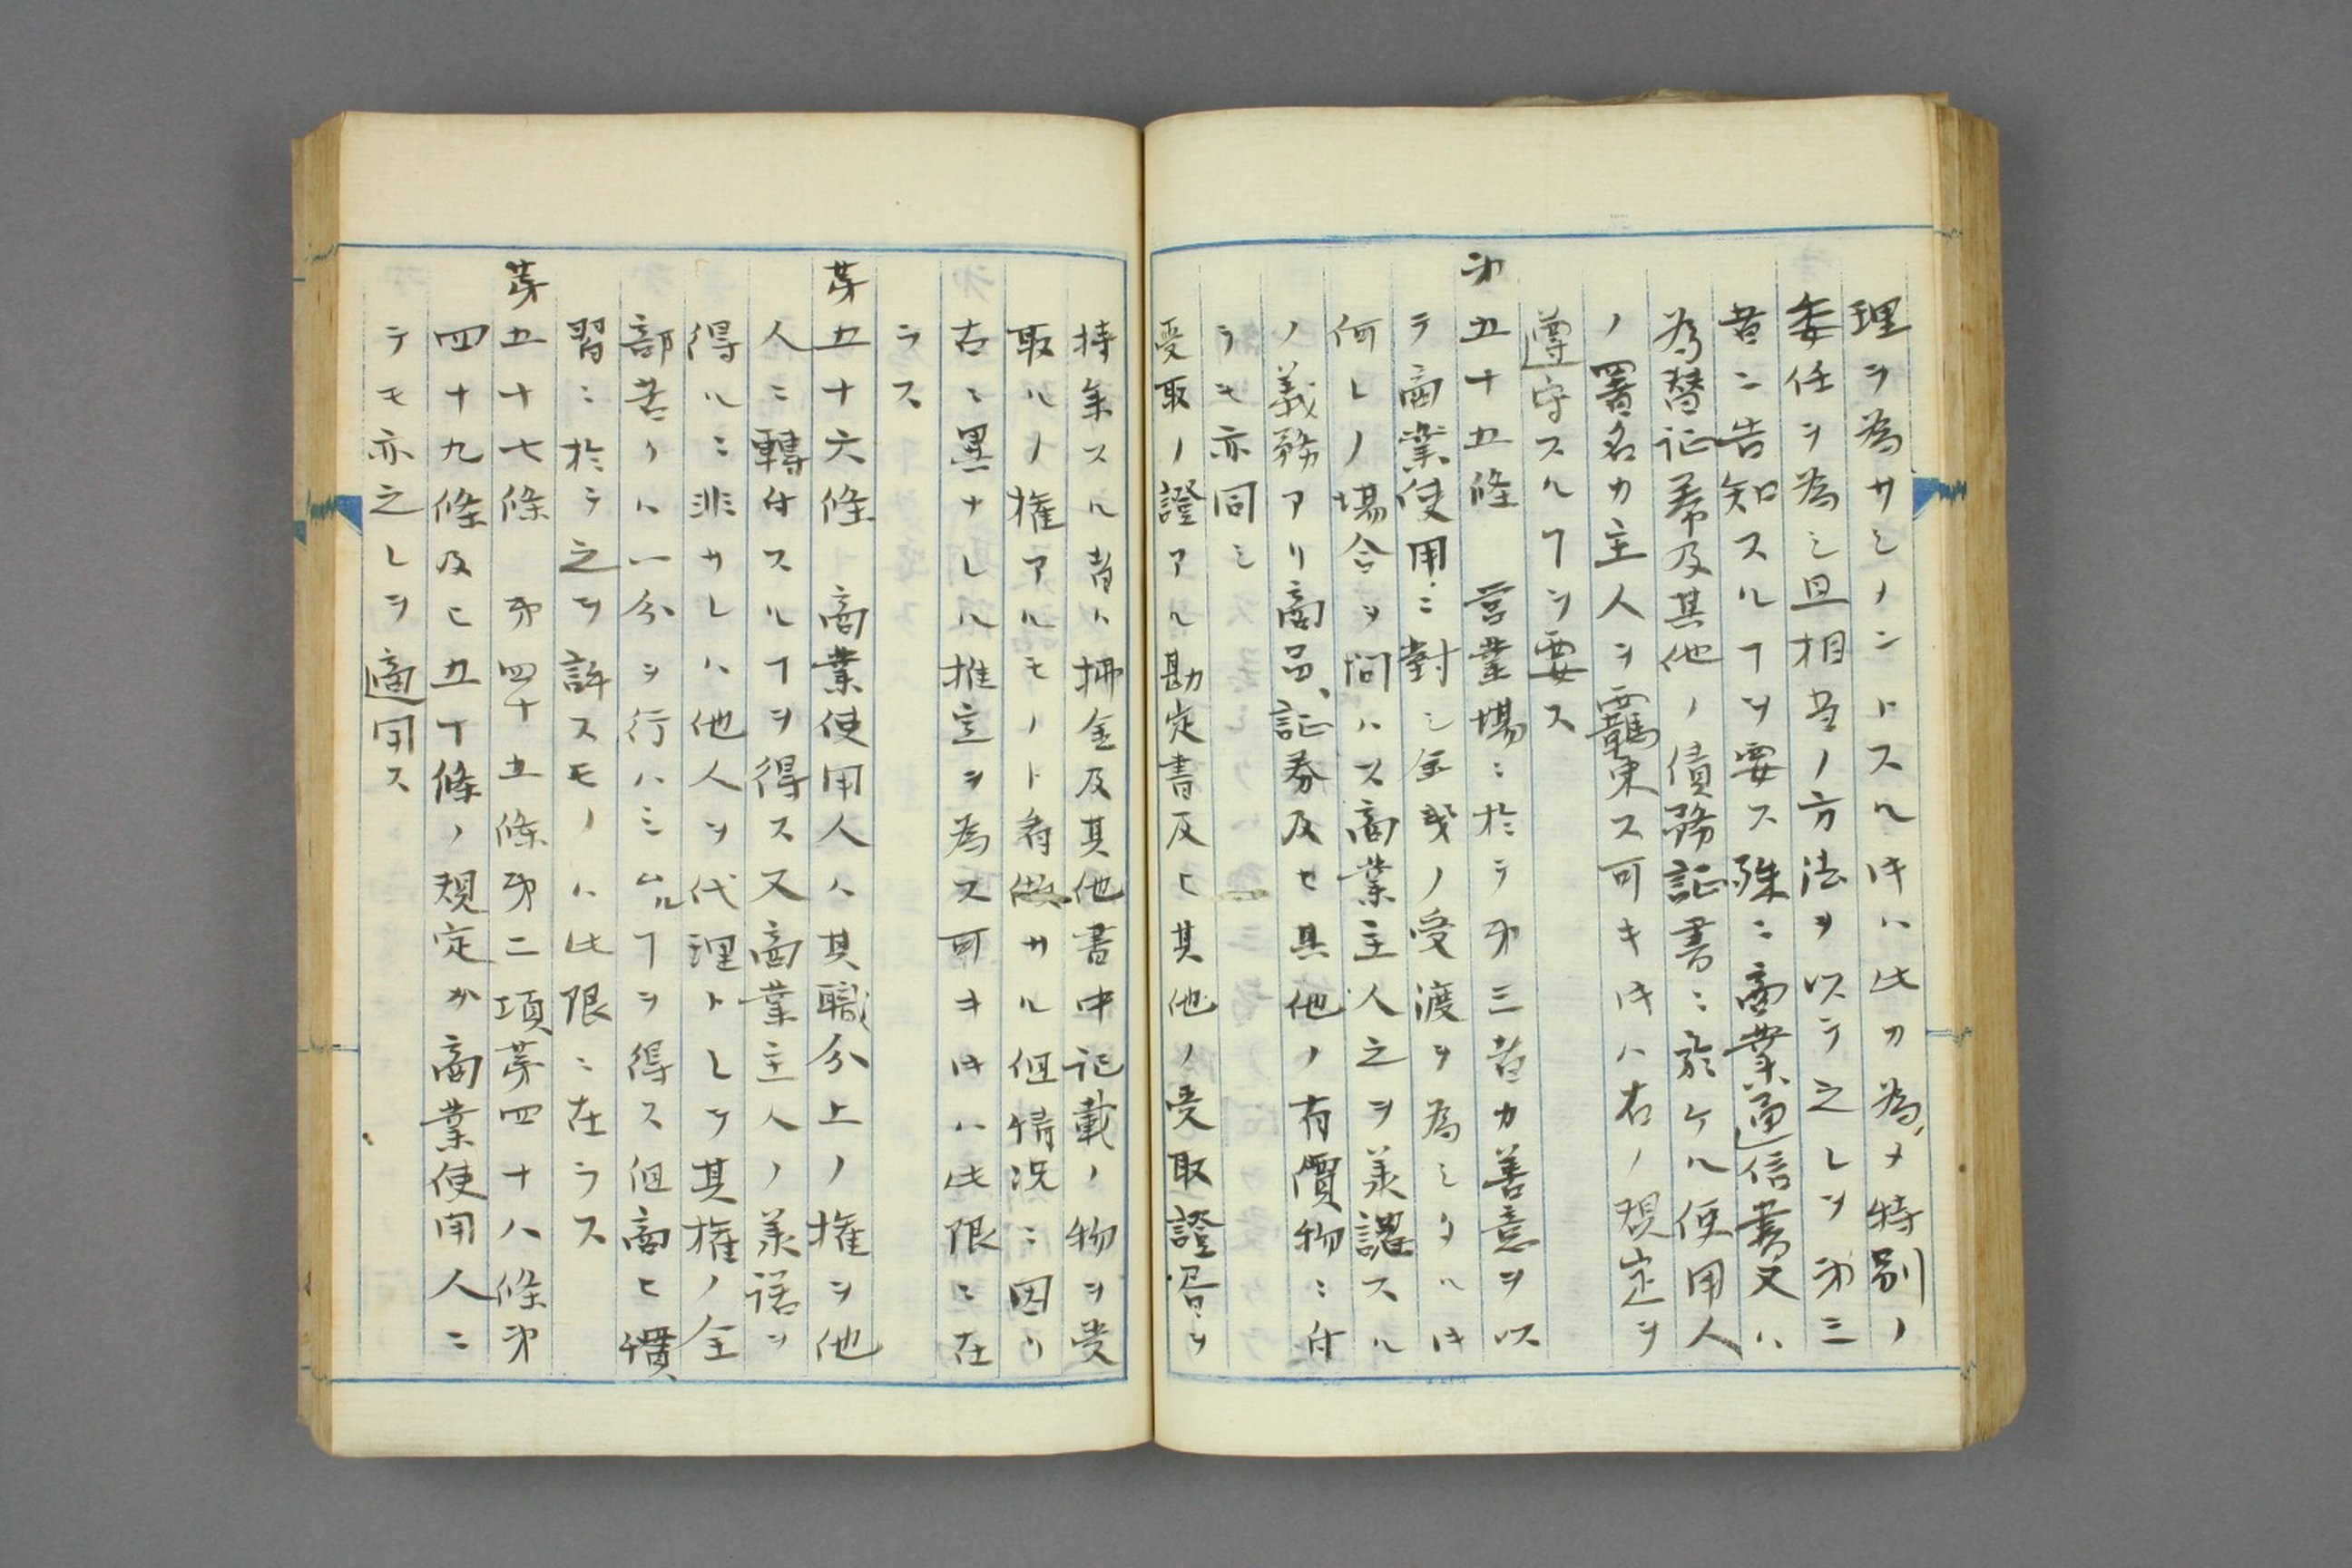 理ヲ為サシメントスルトキハ此カ為メ特別ノ
委任ヲ為シ且相当ノ方法ヲ以テ之レヲ第三
者ニ告知スルヿヲ要ス殊ニ商業通信書又ハ
為替証券及其他ノ債務証書ニ於ケル使用人
ノ署名カ主人ヲ羈束ス可キトキハ右ノ規定ヲ
遵守スルヿヲ要ス
第五十五條 営業場ニ於テ第三者カ善意ヲ以
テ商業使用ニ對シ金錢ノ受渡ヲ為シタルトキ
何レノ場合ヲ問ハス商業主人之ヲ義認スル
ノ義務アリ商品、証券及ヒ其他ノ有價物ニ付
テモ亦同シ
受取ノ證アル勘定書及ヒ其他ノ受取證書ヲ
持参スル者ハ拂金及其他書中記載ノ物ヲ受
取ルノ權アルモノト看做サル但情況ニ因リ
右ニ異ナレル推定ヲ為ス可キトキハ此限ニ在
ラス
第五十六條 商業使用人ハ其職分上ノ權ヲ他
人ニ轉付スルヿヲ得ス又商業主人ノ義諾ヲ
得ルニ非サレハ他人ヲ代理トシテ其權ノ全
部若クハ一分ヲ行ハシムルヿヲ得ス但商ヒ慣
習ニ於テ之ヲ許スモノハ此限ニ在ラス
第五十七條 第四十五條第二項第四十八條第
四十九條及ヒ五十條ノ規定ハ商業使用人ニ
テモ亦之レヲ適用ス